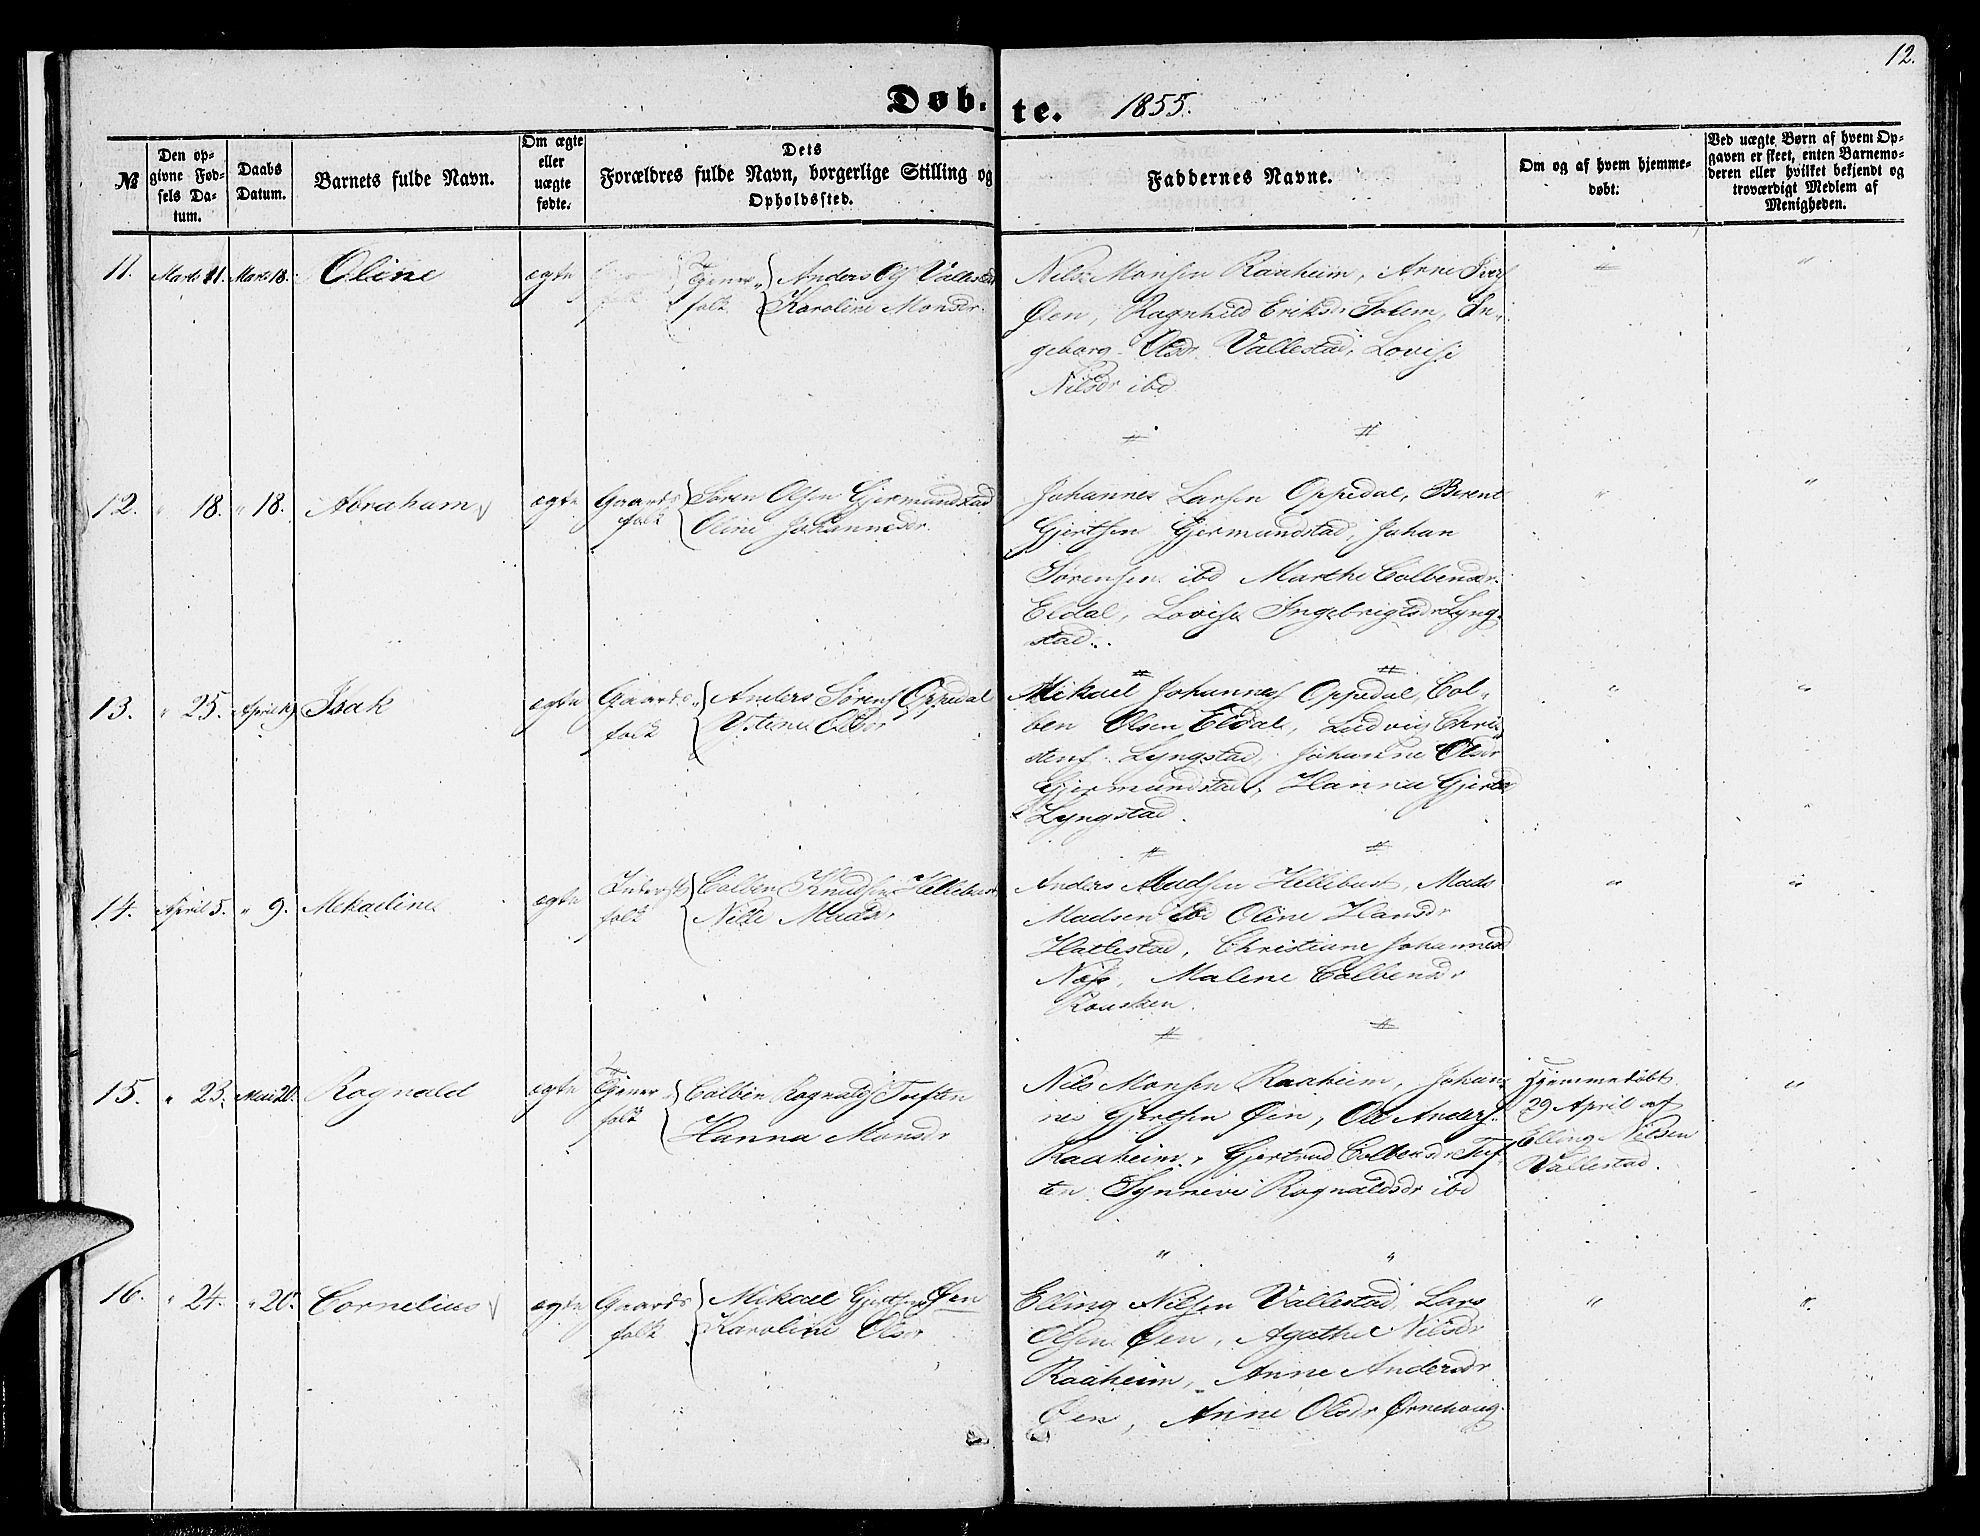 12.
Døb. te. 1855.
№
Den opgivne Fødsels Datum.
Daabs Datum.
Barnets fulde Navn.
Om ægte eller uægte fødte.
Dets Forældres fulde Navn, borgerlige Stilling og Opholdssted.
Faddernes Navne.
Om og af hvem hjemmedøbt.
Ved uægte Børn af hvem Opgaven er skeet, enten Barnemoderen eller hvilket bekjendt og troværdigt Medlem af Menigheden.
11. Marts 11. Marts 18. Oline ægte Tjener folk Anders Ols Vallestad
Karoline Monsdr.
Nils Monsen Raaheim, Arne Ivers
Øen, Ragnhild Eriksdr Solem, In-
geborg Olsdr. Vallestad, Lovise
Nilsdr ibd
12. " 18. " 18. Abraham ægte Gaards folk Søren Olsen Gjermundstad
Oline Johannesdr.
Johannes Larsen Oppedal, Berent
Gjertsen Gjermundstad, Johan
Sørensen ibd Marthe Colbensdr.
Eldal, Lovise Ingebrigtsdr Lyng-
stad..
13. " 25. April 9 Isak ægte Gaards folk Anders Sørens Oppedal
Olsdr
Mikael Johannes Oppedal, Col-
ben Olsen Eldal, Ludvig Chri-
stens. Lyngstad, Johanne Olsdr
Gjermundstad, Hanna Gjertsd
Lyngstad.
14. April 5. " 9. Mikaeline ægte Inderst folk Colben Knudsen Hellebust
Nille Madsdr
Anders Madsen Hellibust, Mads
Madsen ibd Oline Hansdr
Hatlestad, Christiane Johannesd
Næss, Malene Colbensdr
Kousken.
15. " 23. Mai 20. Rognald ægte Tjener folk Colben Rognalds Tuften
Hanna Monsdr
Nils Monsen Raaheim, Johan-
nes Gjertsen Øen, Ole Anders.
Raaheim, Gjertrud Colbensdr Tuf-
ten Synneve Rognaldsdr ibd
Hjemmedøbt
29 April af
Elling Nilsen
Vallestad.
16. " 24. " 20. Cornelius ægte Gaards folk Mikael Gjertsen Øen
Karoline Olsdr
Elling Nilsen Vallestad, Lars
Olsen Øen, Agathe Nilsdr
Raaheim, Anne Andersdr
Øen, Anne Olsdr Ørnehoug.